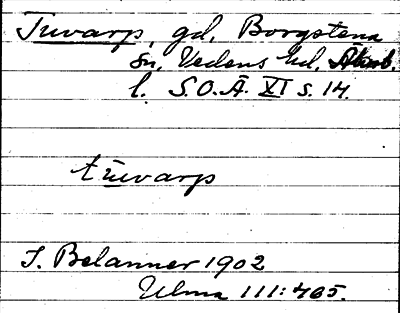 Tuvarp, gd, Borgstena
sn, Vedens hd, Älvsb.
l. S.O.Ä. XI s. 14.
tùvarp
J. Belanner 1902
Ulma 111:465.